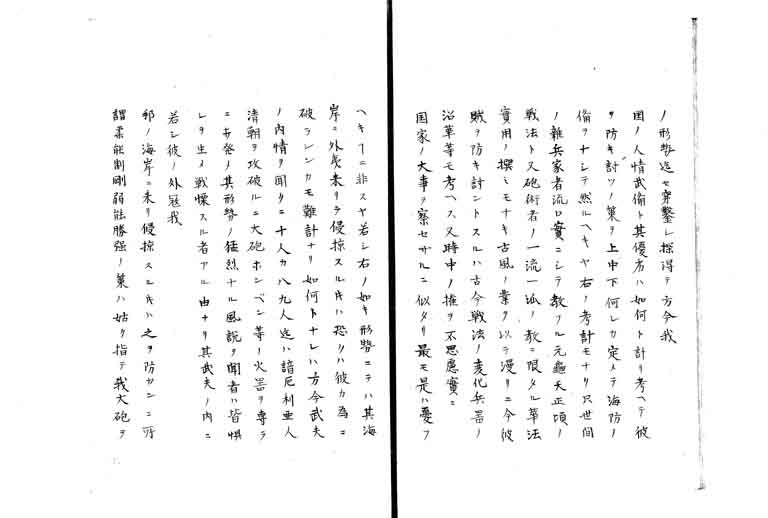 ノ形勢迄モ穿鑿シ探得テ方今我
国ノ人情武備ト其優劣ハ如何ト計リ考ヘテ彼
ヲ防キ討ツノ策ヲ上中下何レカ定メテ海防ノ
備ヲナシテ然ルヘキヤ右ノ考計モナク只世間
ノ雑兵家者流口實ニシテ教フル元龜天正頃ノ
戦法ト又砲術者ノ一流一派ノ教ニ限タル華法
實用ノ撰ミモナキ古風ノ業ヲ以テ漫リニ今彼
賊ヲ防キ討ントスルハ古今戦法ノ変化兵器ノ
沿革等モ考ヘス又時中ノ権ヲ不思慮實ニ
国家ノ大事ヲ察セサルニ似タリ最モ是ハ憂フ
ヘキヿニ非スヤ若シ右ノ如キ形勢ニテハ其海
岸ニ外夷来リテ侵掠スル片ハ恐クハ彼カ為ニ
破ラレンカモ難計ナリ如何トナレハ方今武夫
ノ内情ヲ聞クニ十人カ八九人迄ハ諳厄利亜人
清朝ヲ攻破ルニ大砲ホンベン等ノ火器ヲ専ラ
ニ打発ノ其形勢ノ猛烈ナル風説ヲ聞者ハ皆惧
レヲ生メ戦慄スル者アル由ナリ其武夫ノ内ニ
若シ彼ノ外寇我
邦ノ海岸ニ来リ侵掠スル片ハ之ヲ防カンニ所
謂柔能制剛弱能勝強ノ策ハ姑ク指テ我大砲ヲ